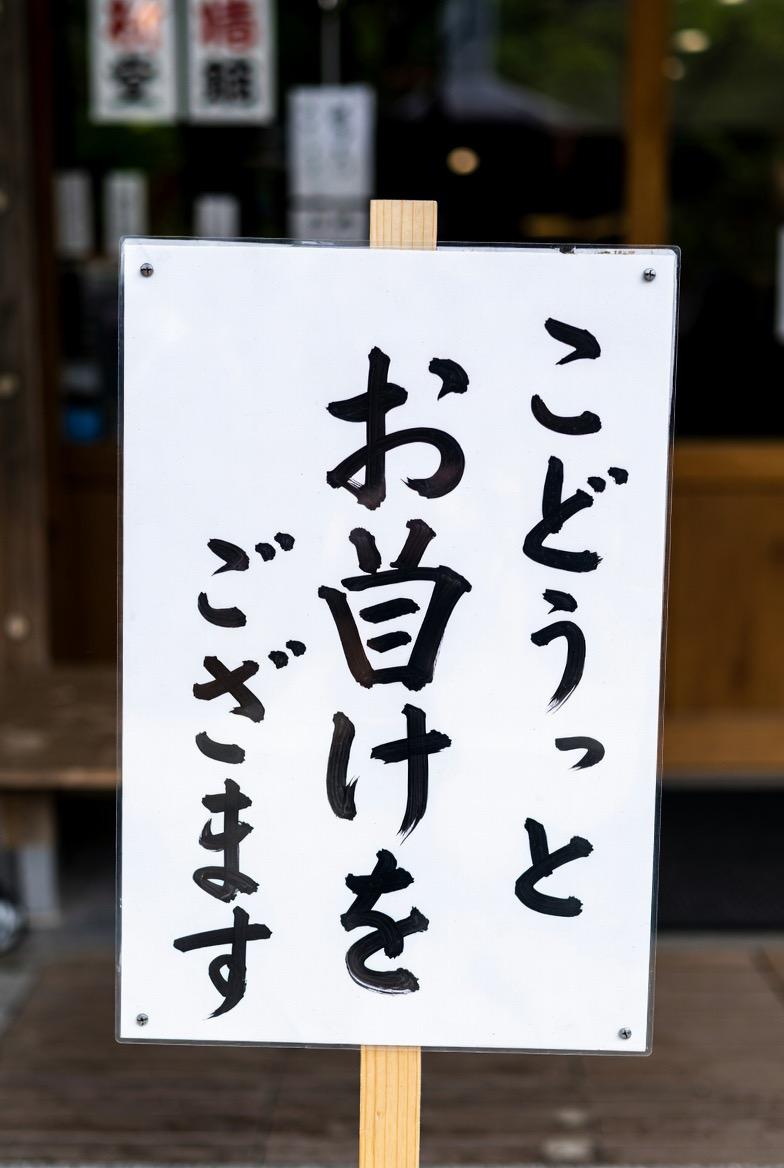 こどうっと
お首けを
ございます